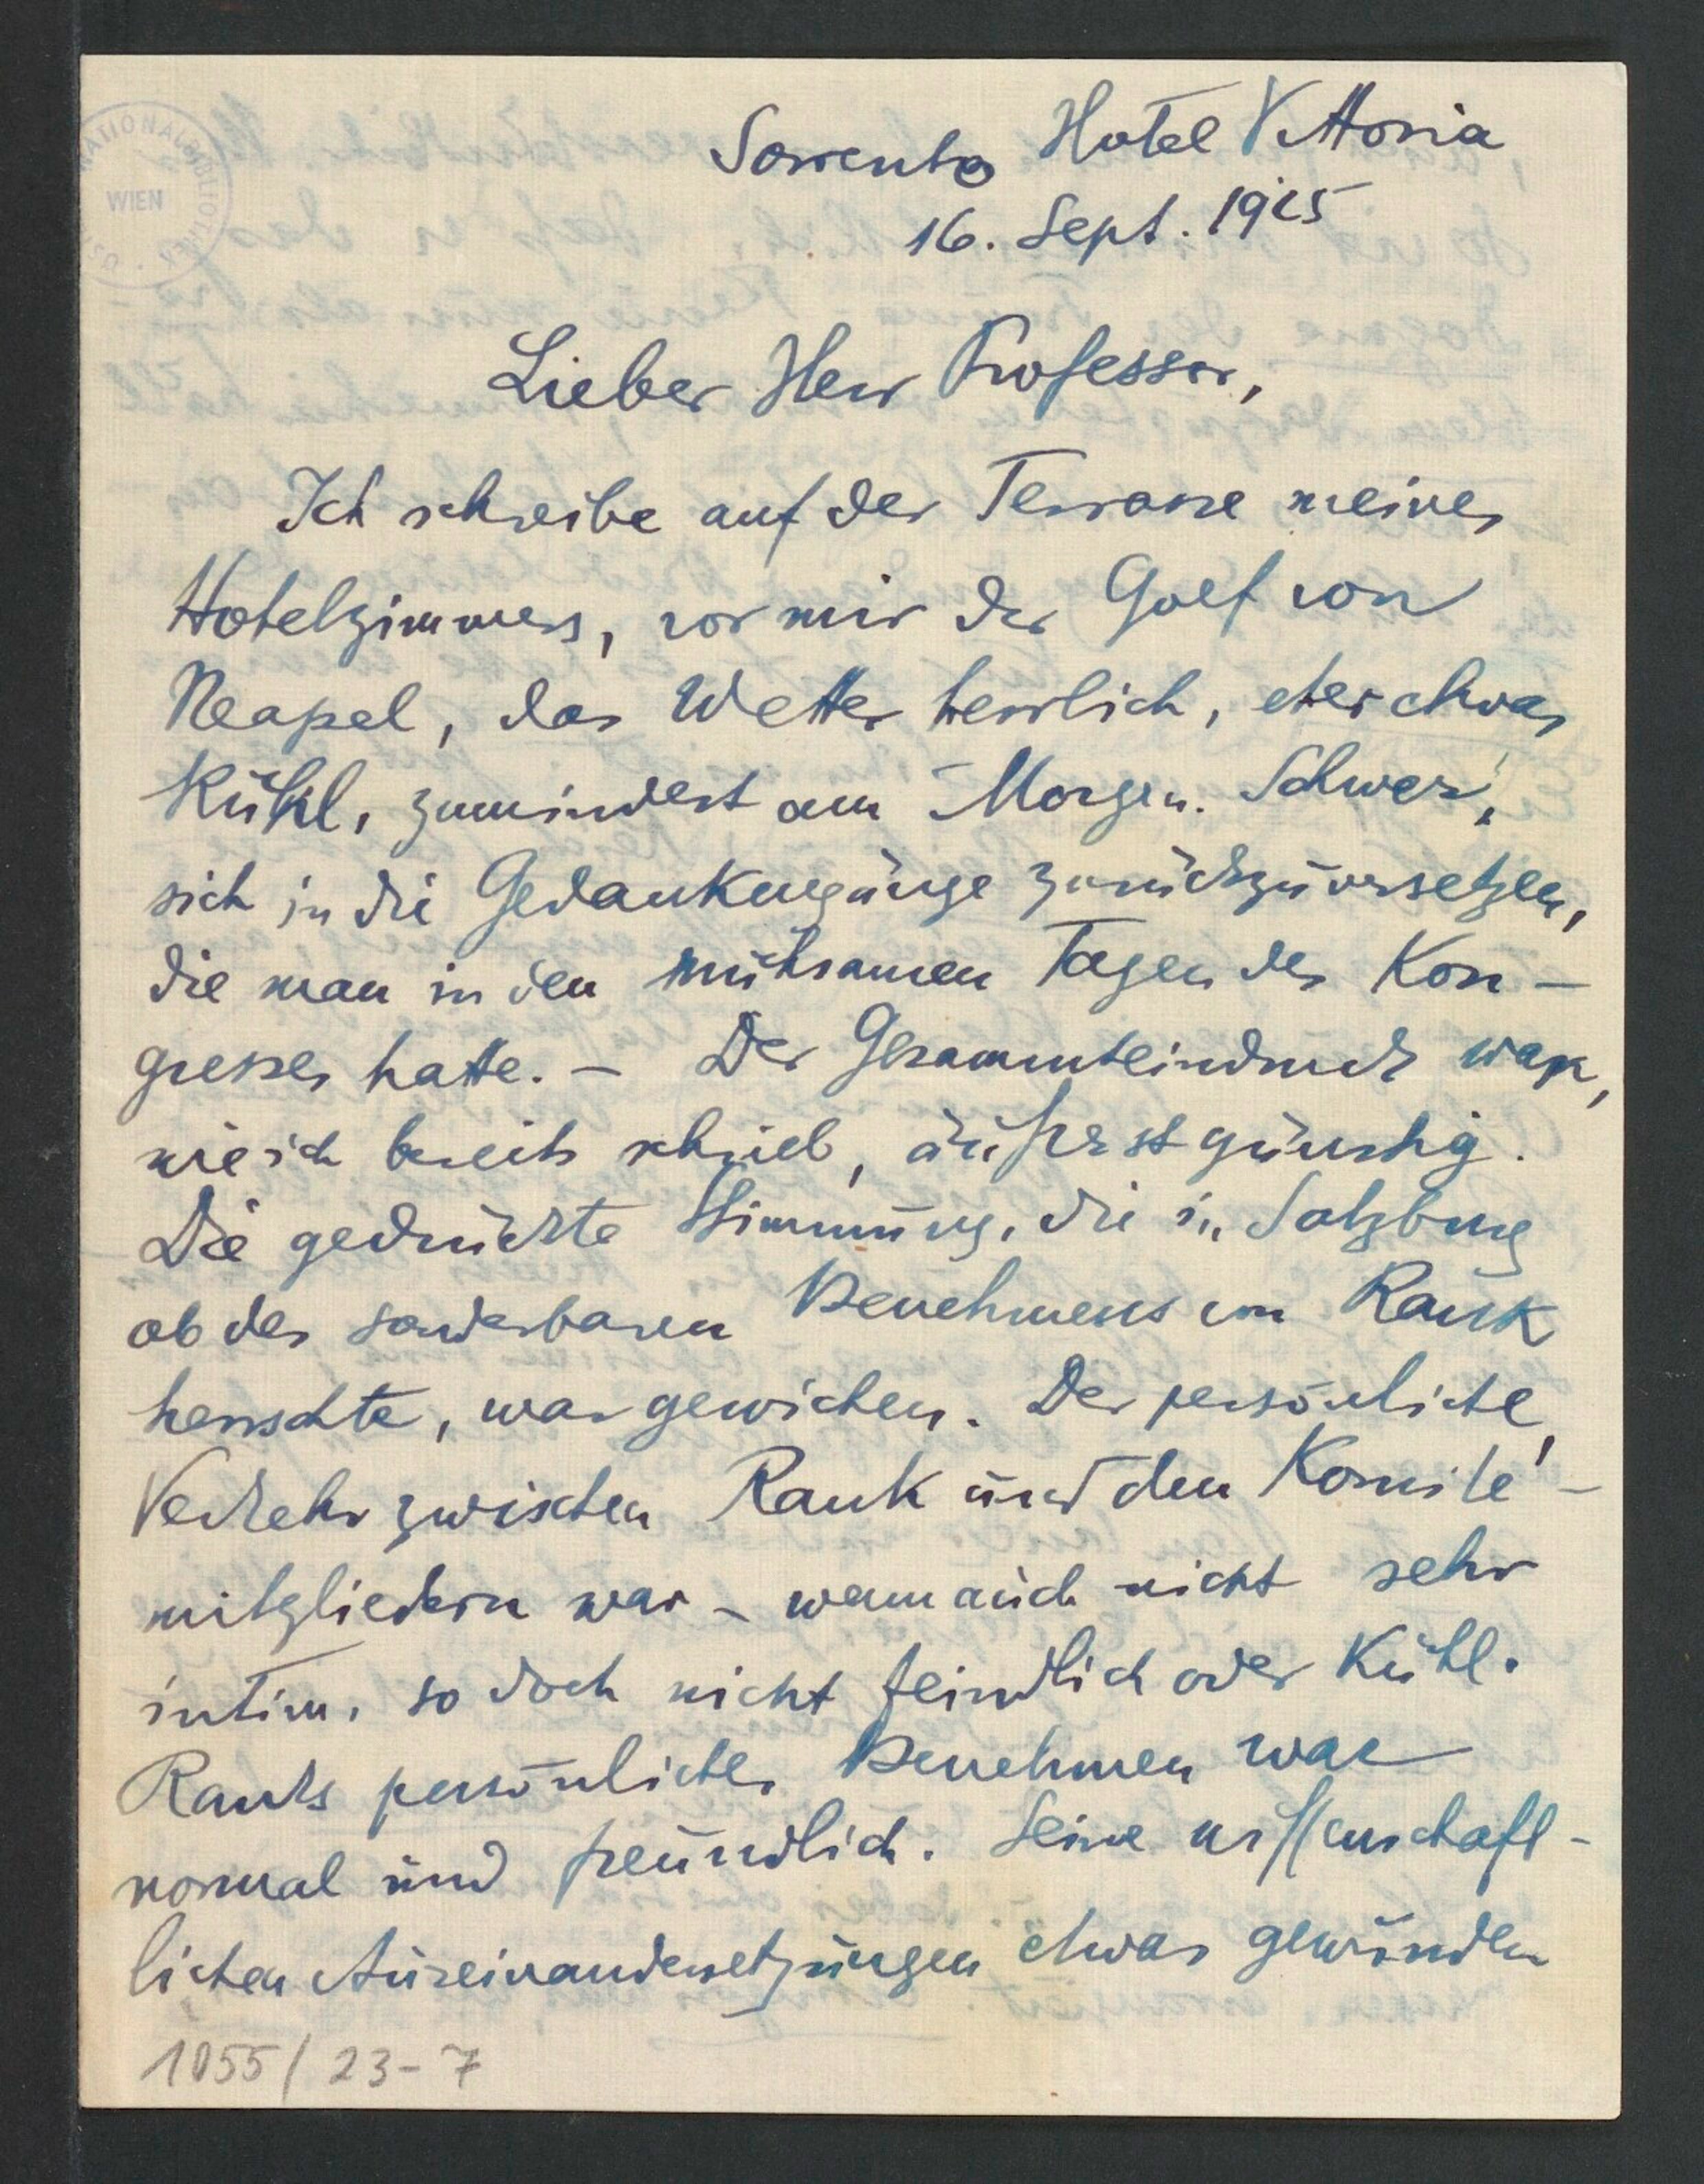 Sorrento Hotel Vittoria
16. Sept. 1925
Lieber Herr Professor,
Ich schreibe auf der Terrasse meines
Hotelzimmers, vor mir der Golf von
Neapel, das Wetter herrlich, eher etwas
kühl, zumindest am Morgen. Schwer,
sich in die Gedankengänge zurückzuversetzen,
die man in den mühsamen Tagen des Kon-
gresses hatte. – Der Gesammteindruck war,
wie ich bereits schrieb, äußerst günstig.
Die gedrückte Stimmung, die in Salzburg
ob des sonderbaren Benehmens von Rank
herrschte, war gewichen. Der persönliche
Verkehr zwischen Rank und den Komité-
mitgliedern war – wenn auch nicht sehr
intim, so doch nicht feindlich oder kühl.
Ranks persönliches Benehmen war
normal und freundlich. Seine wissenschaft-
lichen Auseinandersetzungen etwas gewunden
1055/23-7
NATIONALBIBLIOTHEK
WIEN